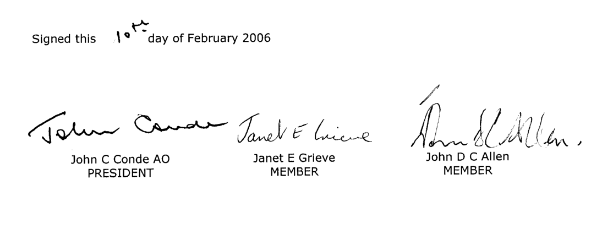 Signed this 10th day of February 2006
John Conde Janet E Grieve John D C Allen.
John C Conde AO Janet E Grieve John D C Allen
PRESIDENT MEMBER MEMBER